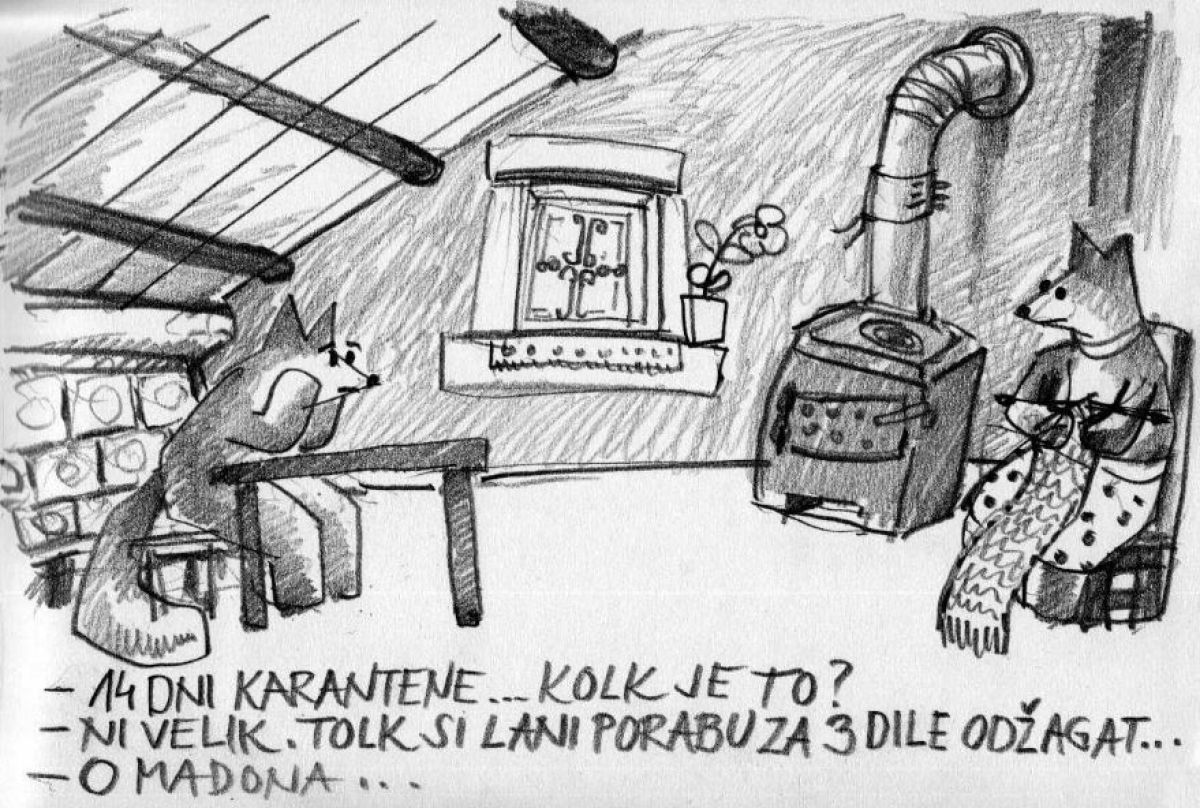 - 14 DNI KARANTENE... KOLK JE TO?
- NI VELIK. TOLK SI LANI PORABU ZA 3 DILE ODŽAGAT...
- O MADONA...